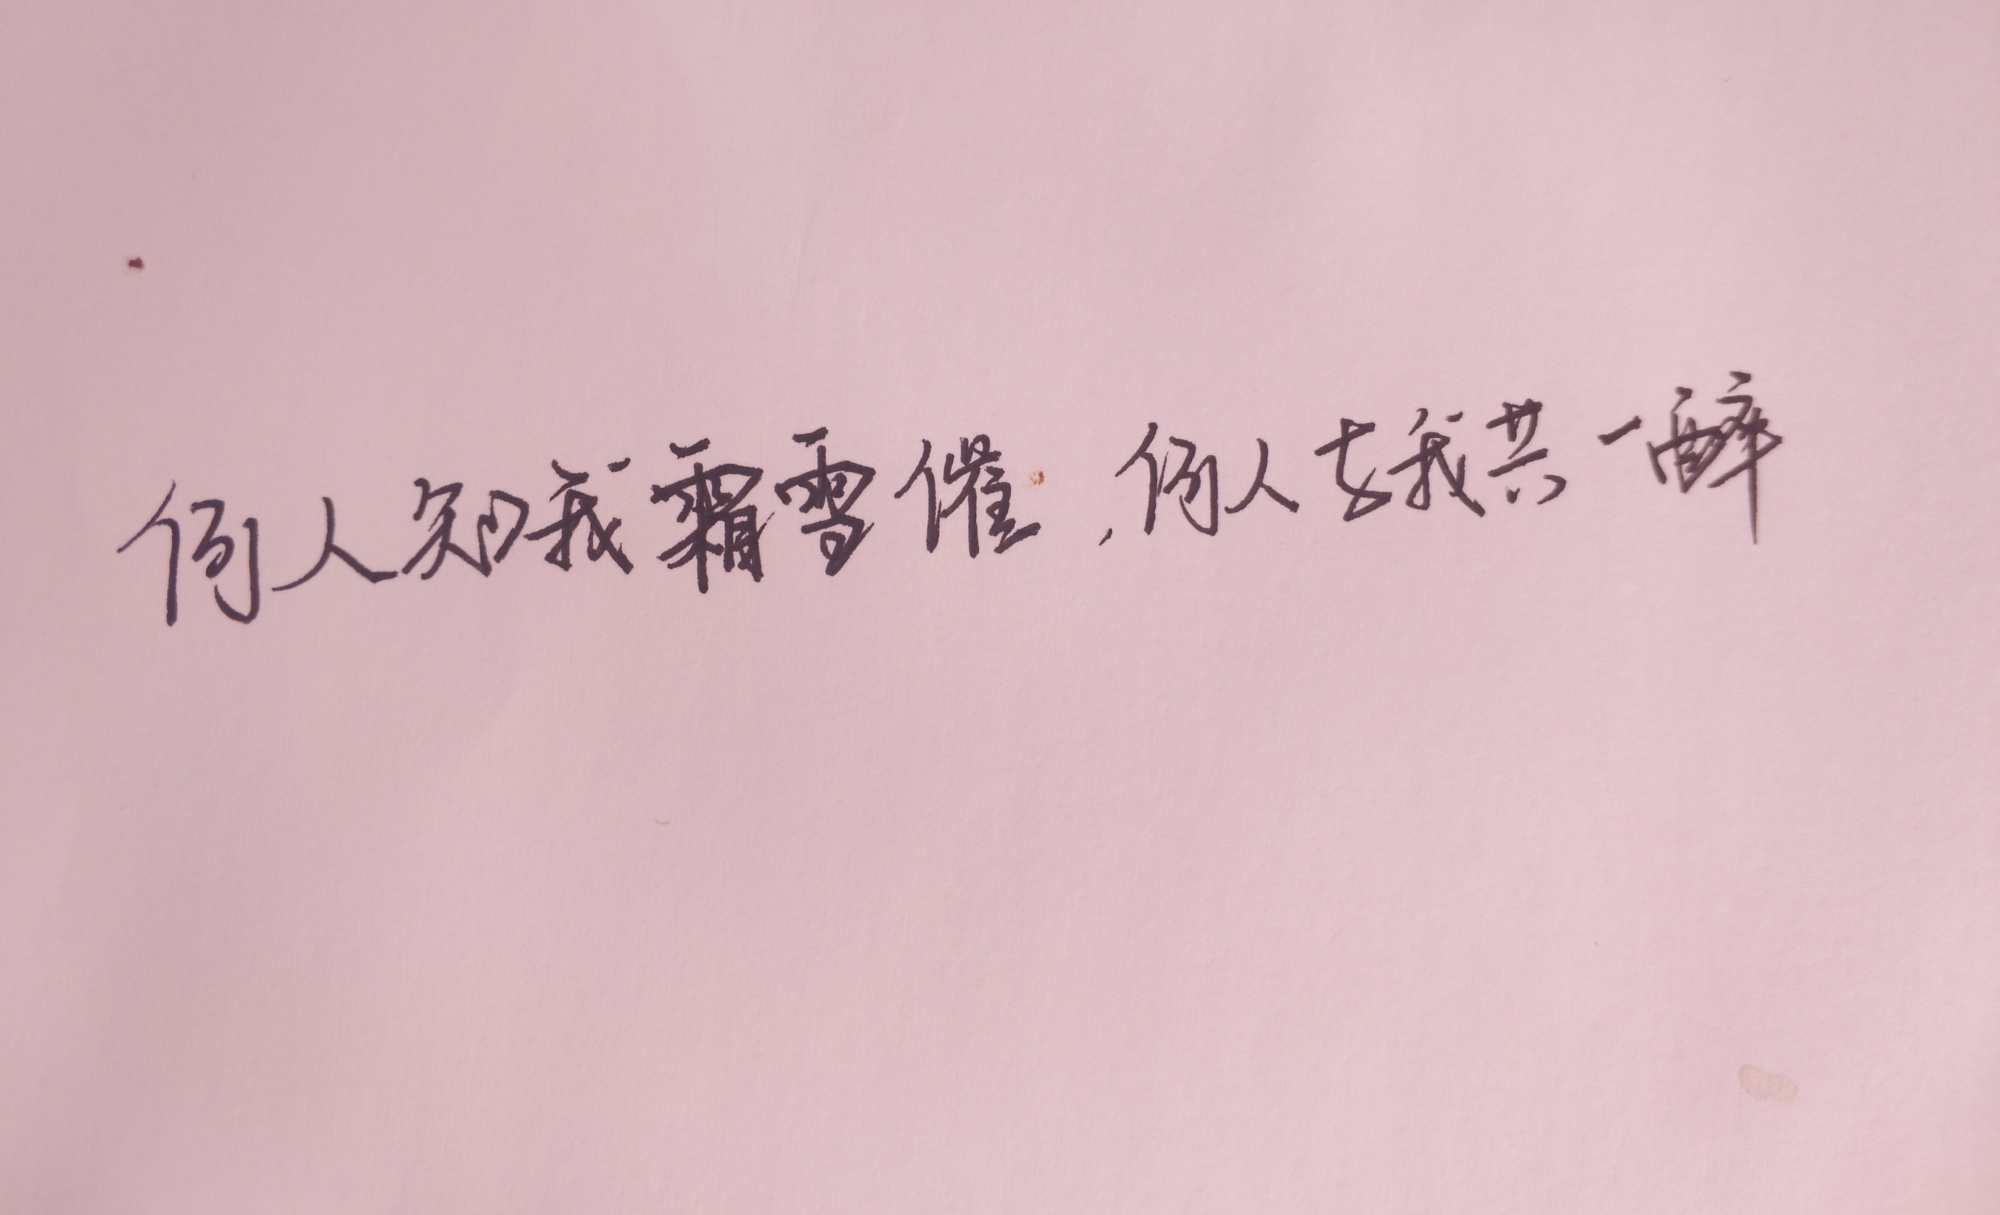 何人知我霜雪催,何人与我共一醉